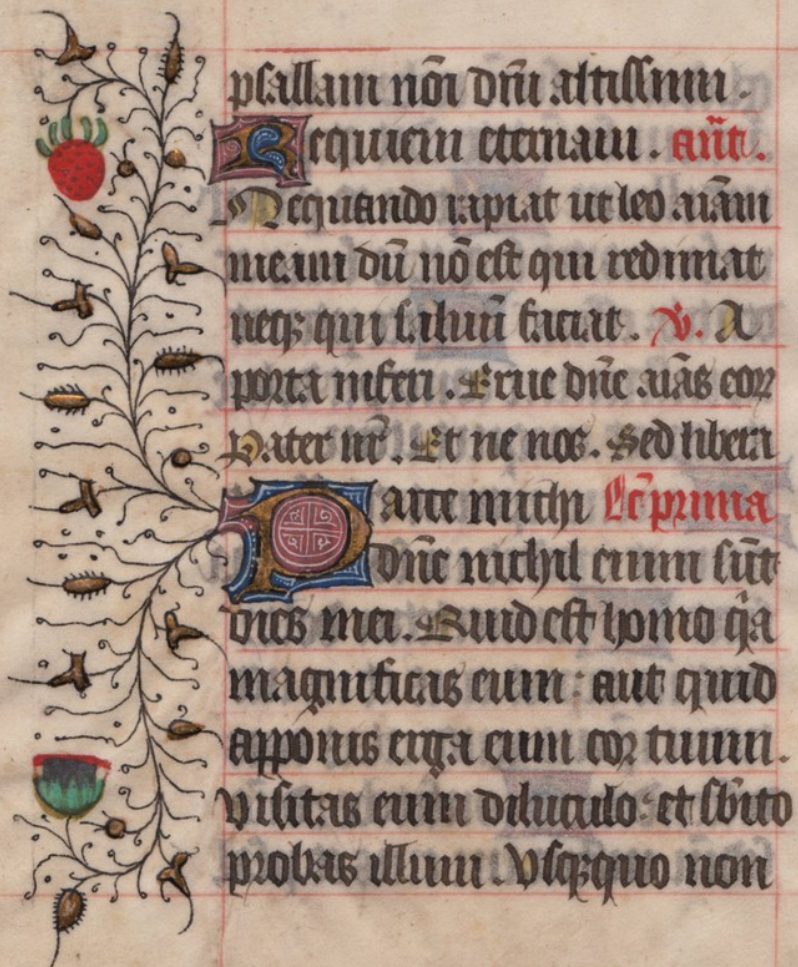 psallam nōi dñi altissimi.
Requiem eternam. añt.
Nequando rapiat ut leo aīam
meam dū nō est qui redimat
neqꝫ qui saluū faciat. ℣. A
porta inferi. Erue dñe aīas eoꝝ
Pater nr̄. Et ne nos. Sed libera
Parce michi Lc̄ prima
dñe nichil enim sūt
dies mei. Quid est homo qͥa
magnificas eum: aut quid
apponis erga eum coꝛ tuum.
visitas eum diluculo: et sb̄ito
probas illum. Vsqꝫquo non